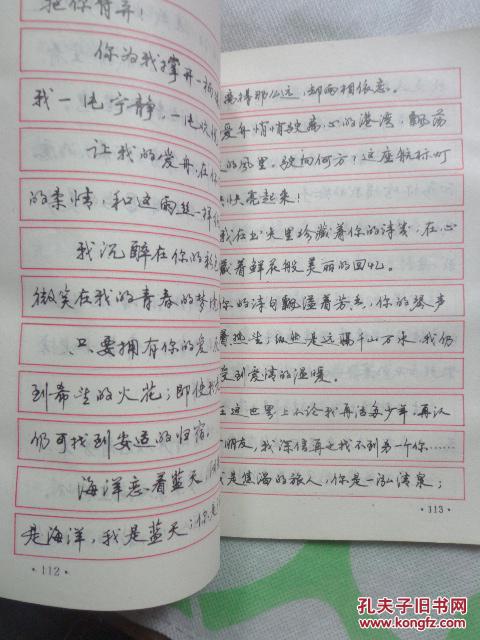 把你背弃!
你为我撑开一
我一片宁静,一片欢
让我的爱舟,在你
的柔情,和这雨丝一样
我沉醉在你的
微笑在我的青春的梦
只要拥有你的爱,
到希望的火花;即使我
仍可找到安适的归宿。
海洋恋着蓝天,
是海洋,我是蓝天;你是
·112·
离得那么远,却两相依恋。
爱舟悄悄驶离心的港湾,飘荡
的风里。驶向何方?这座航标灯
快快亮起来!
我在心里珍藏着你的诗笺,在心
藏着鲜花般美丽的回忆。
你的诗句飘溢着芳香,你的琴声
着热望;纵然是远隔千山万水,我仍
受到爱情的温暖。
在这世界上不论我再活多少年,再认
朋友,我深信再也找不到另一个你……
我是焦渴的旅人,你是一泓清泉;
·113·
孔夫子旧书网